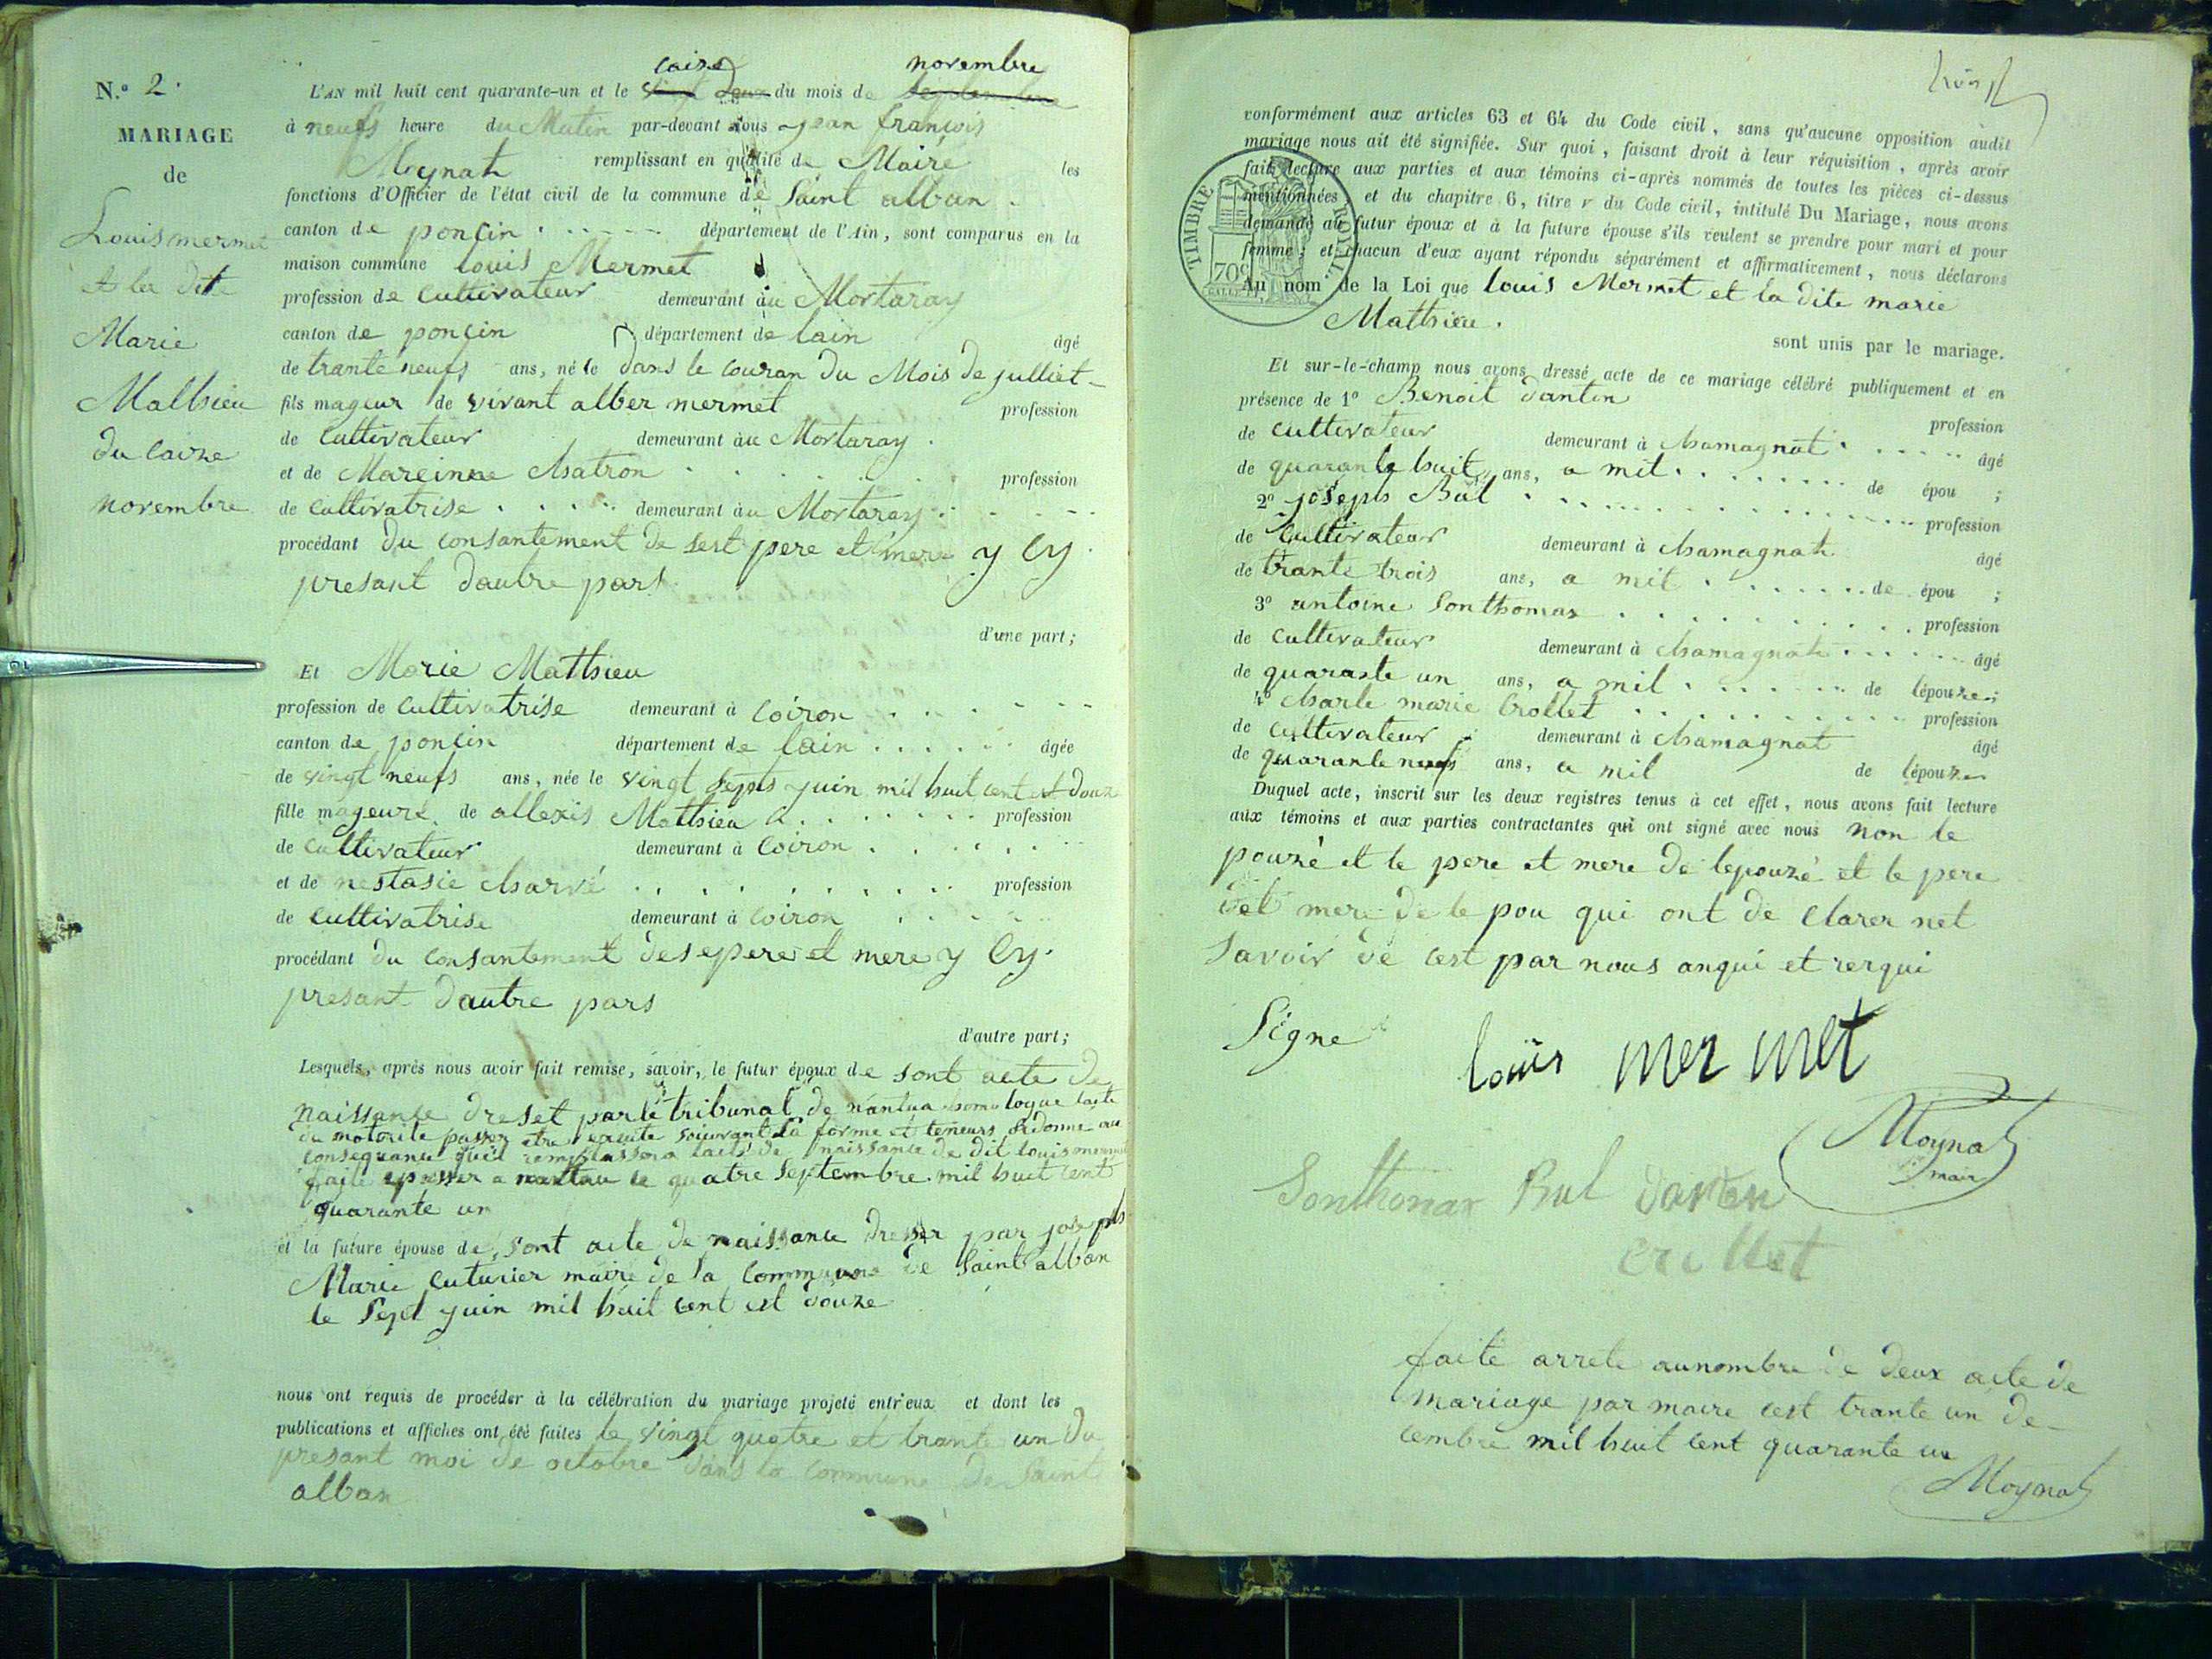 N.º 2.
MARIAGE
de
Louis mermet
et la dite
Marie
Mathieu
du caize
novembre
caize novembre
L'AN mil huit cent quarante-un et le vingt deux du mois de septembre
à neufs heure du Matin par-devant nous jean francois
Moynat remplissant en qualité de Maire les
fonctions d'Officier de l'état civil de la commune de Saint alban
canton de poncin département de l'Ain, sont comparus en la
maison commune louis Mermet
profession de Cultivateur demeurant au Mortaray
canton de poncin département de lain âgé
de trante neufs ans, né le dans le couran du Mois de julliet
fils mageur de vivant alber mermet profession
de Cultivateur demeurant au Mortaray
et de Mareinne Chatron profession
de cultivatrise demeurant au Mortaray
procédant du consantement de sest pere et mere y cy
presant dautre part
d'une part;
Et Marie Mathieu
profession de Cultivatrise demeurant à Coiron
canton de poncin département de lain âgée
de vingt neufs ans, née le vingt septs juin mil huit cent et douze
fille mageure de allexis Mathieu profession
de Cultivateur demeurant à Coiron
et de nestasie charvé profession
de Cultivatrise demeurant à Coiron
procédant du consantement des epere et mere y cy
presant dautre pars
d'autre part;
Lesquels, après nous avoir fait remise, savoir, le futur époux de sont acte de
naissance dreset par le tribunal de nantua homologue lacte
de motorite passer etre execute souivant la forme et teneurs ordonne au
consequance queil remplassera lacte de naissance de dit louis mermet
faite epasser a nantau le quatre septembre mil huit cent
quarante un
et la future épouse de sont acte de naissance dresser par joseph
Marie cuturier maire de la commune de Saint alban
le Sept juin mil huit cent est douze
nous ont requis de procéder à la célébration du mariage projeté entr'eux et dont les
publications et affiches ont été faites le vingt quatre et trante un du
presant moi de octobre dans la commune de saint
alban
conformément aux articles 63 et 64 du Code civil, sans qu'aucune opposition audit
mariage nous ait été signifiée. Sur quoi, faisant droit à leur réquisition, après avoir
fait lecture aux parties et aux témoins ci-après nommés de toutes les pièces ci-dessus
mentionnées et du chapitre 6, titre v du Code civil, intitulé Du Mariage, nous avons
demandé au futur époux et à la future épouse s'ils veulent se prendre pour mari et pour
femme; et chacun d'eux ayant répondu séparément et affirmativement, nous déclarons
Au nom de la Loi que louis Mermet et la dite marie
Mathieu.
sont unis par le mariage.
TIMBRE ROYAL.
70c
Et sur-le-champ nous avons dressé acte de ce mariage célébré publiquement et en
présence de 1º Benoit dantin profession
de cultivateur demeurant à chamagnat âgé
de quarante huit ans, a mit de épou ;
2º joseph Bul profession
de Cultivateur demeurant à chamagnat âgé
de trante trois ans, a mit de épou ;
3º antoine sonthomax profession
de cultivateur demeurant à chamagnat âgé
de quarante un ans, a mil de lépouze;
4º charle marie Crollet profession
de cultivateur demeurant à chamagnat âgé
de quarante neufs ans, a mil de lépouze
Duquel acte, inscrit sur les deux registres tenus à cet effet, nous avons fait lecture
aux témoins et aux parties contractantes qui ont signé avec nous non le
pouzé et le pere et mere de lepouzé et le pere
det mere de le pou qui ont de clarer net
savoir de cest par nous anqui et rerqui
Signe
louis mermet
Moynat
maire
Sonthonax Bul danten
crollet
faite arrete aunombre de deux acte de
mariage par maire cest trante un de-
cembre mil huit cent quarante un
Moynat